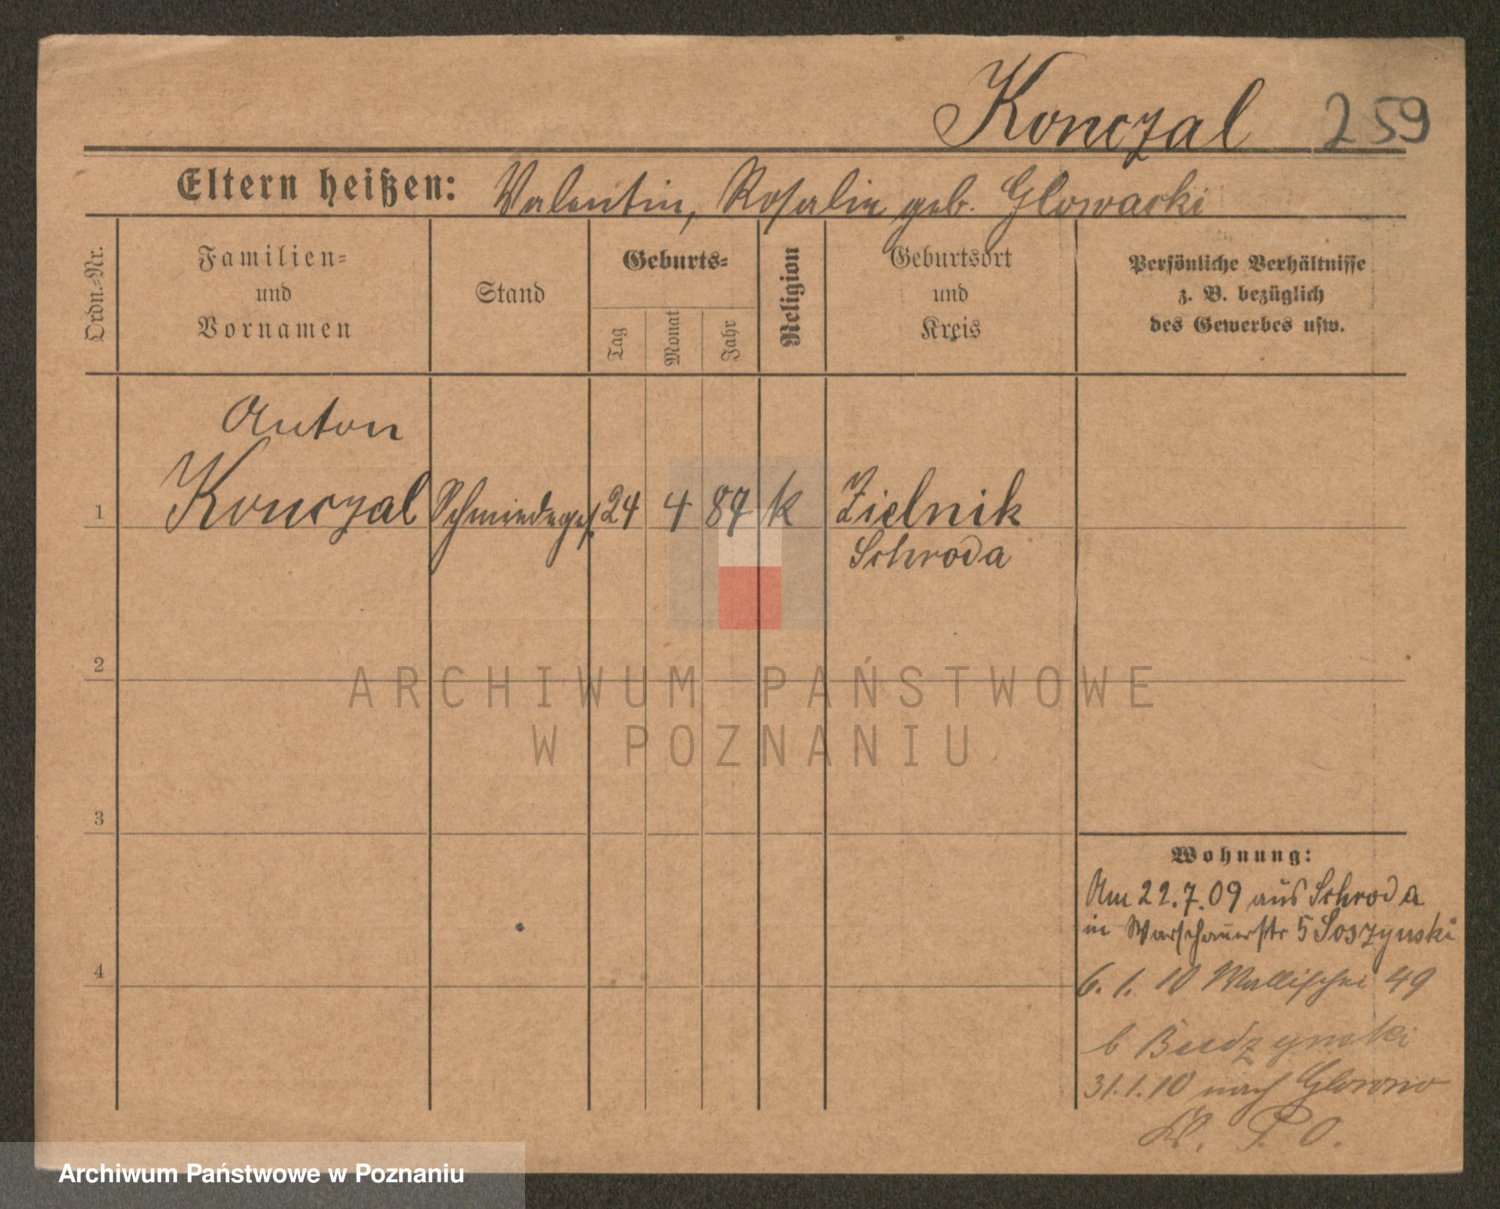 Konczal 259
Eltern heißen: Valentin, Rosalie geb. Glowacki
Ordn.-Nr.
Familien-
und
Vornamen
Stand
Geburts-
Tag
Monat
Jahr
Religion
Geburtsort
und
Kreis
Persönliche Verhältnisse
z. B. bezüglich
des Gewerbes usw.
Anton
1 Konczal Schmiedeges. 24 4 87 k Zielnik
Schroda
2
3
4
Wohnung:
Am 22.7.09 aus Schroda
in Warschauerstr 5 Soszynski
6. 1. 10 Wallischei 49
b Budzynski
31.1.10 nach Glowno
Kr. P. O.
ARCHIWUM PAŃSTWOWE
W POZNANIU
Archiwum Państwowe w Poznaniu